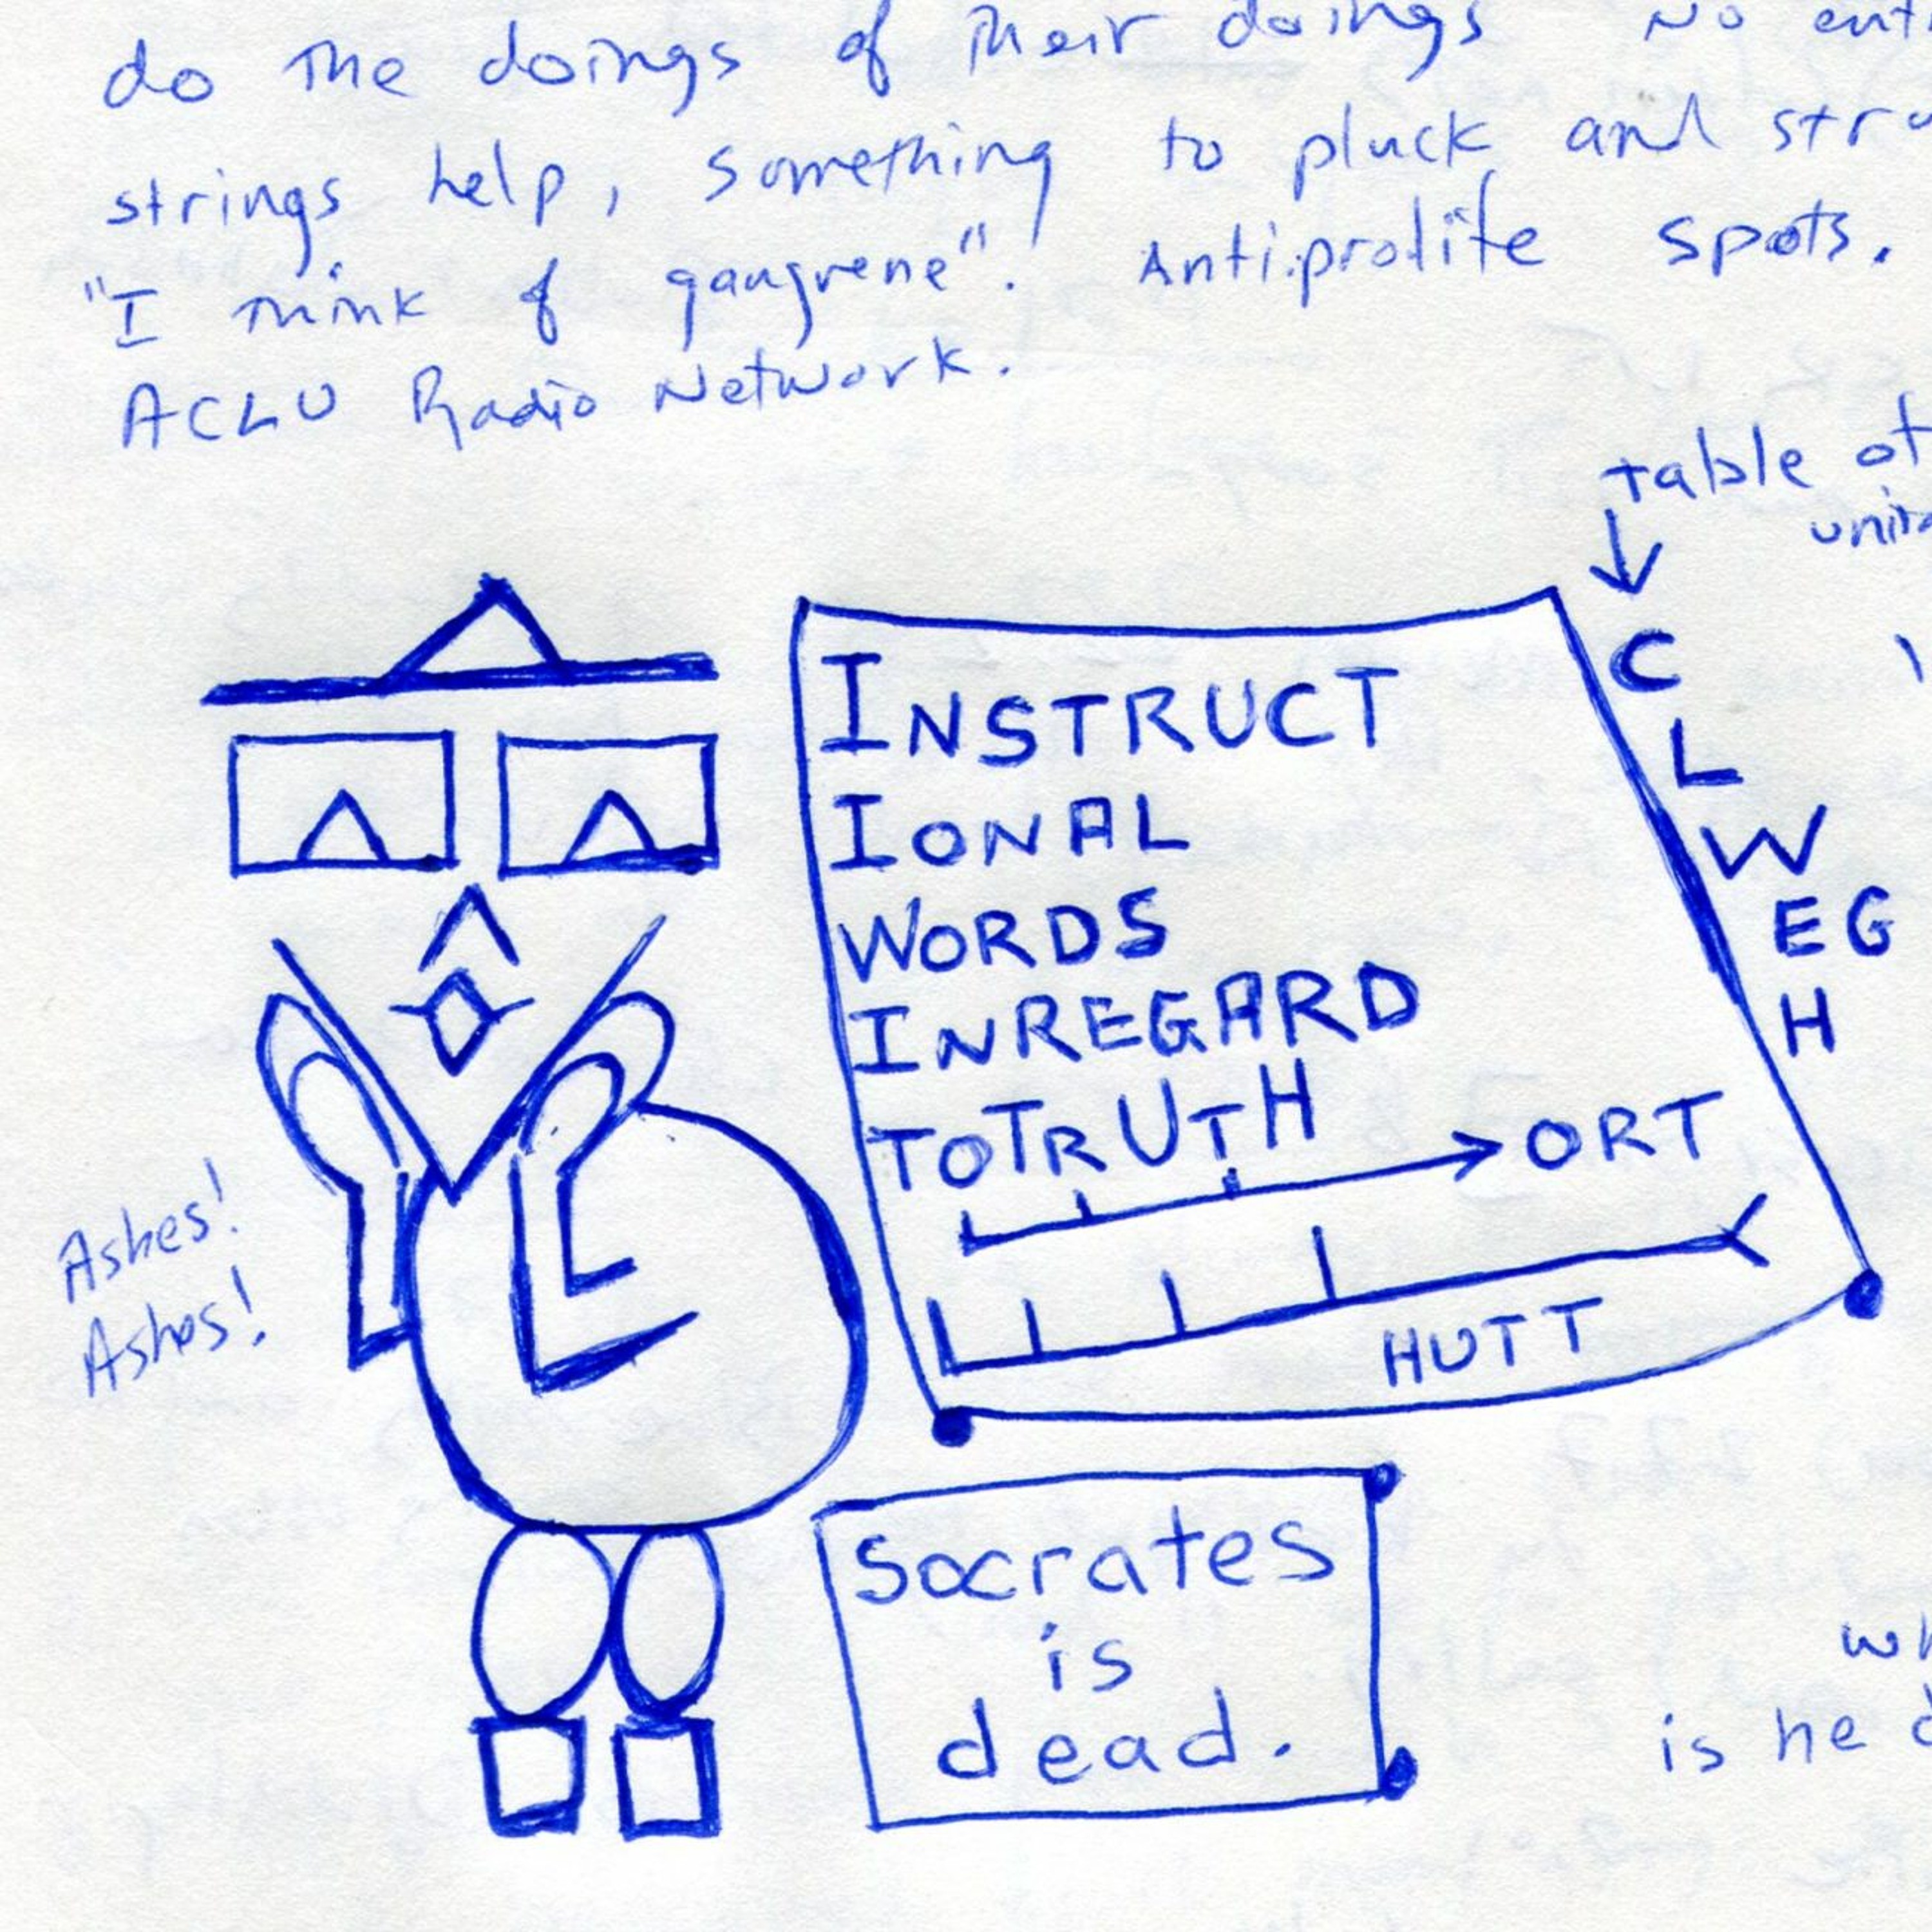 do the doings of their doings No
strings help, something to pluck and
"I think of gangrene". Antiprolife spots.
ACLU Radio Network.
Table of
↓
C
L
W
E G
H
INSTRUCT
IONAL
WORDS
INREGARD
TOTRUTH
ORT
HUTT
Ashes!
Ashes!
Socrates
is
dead.
is he